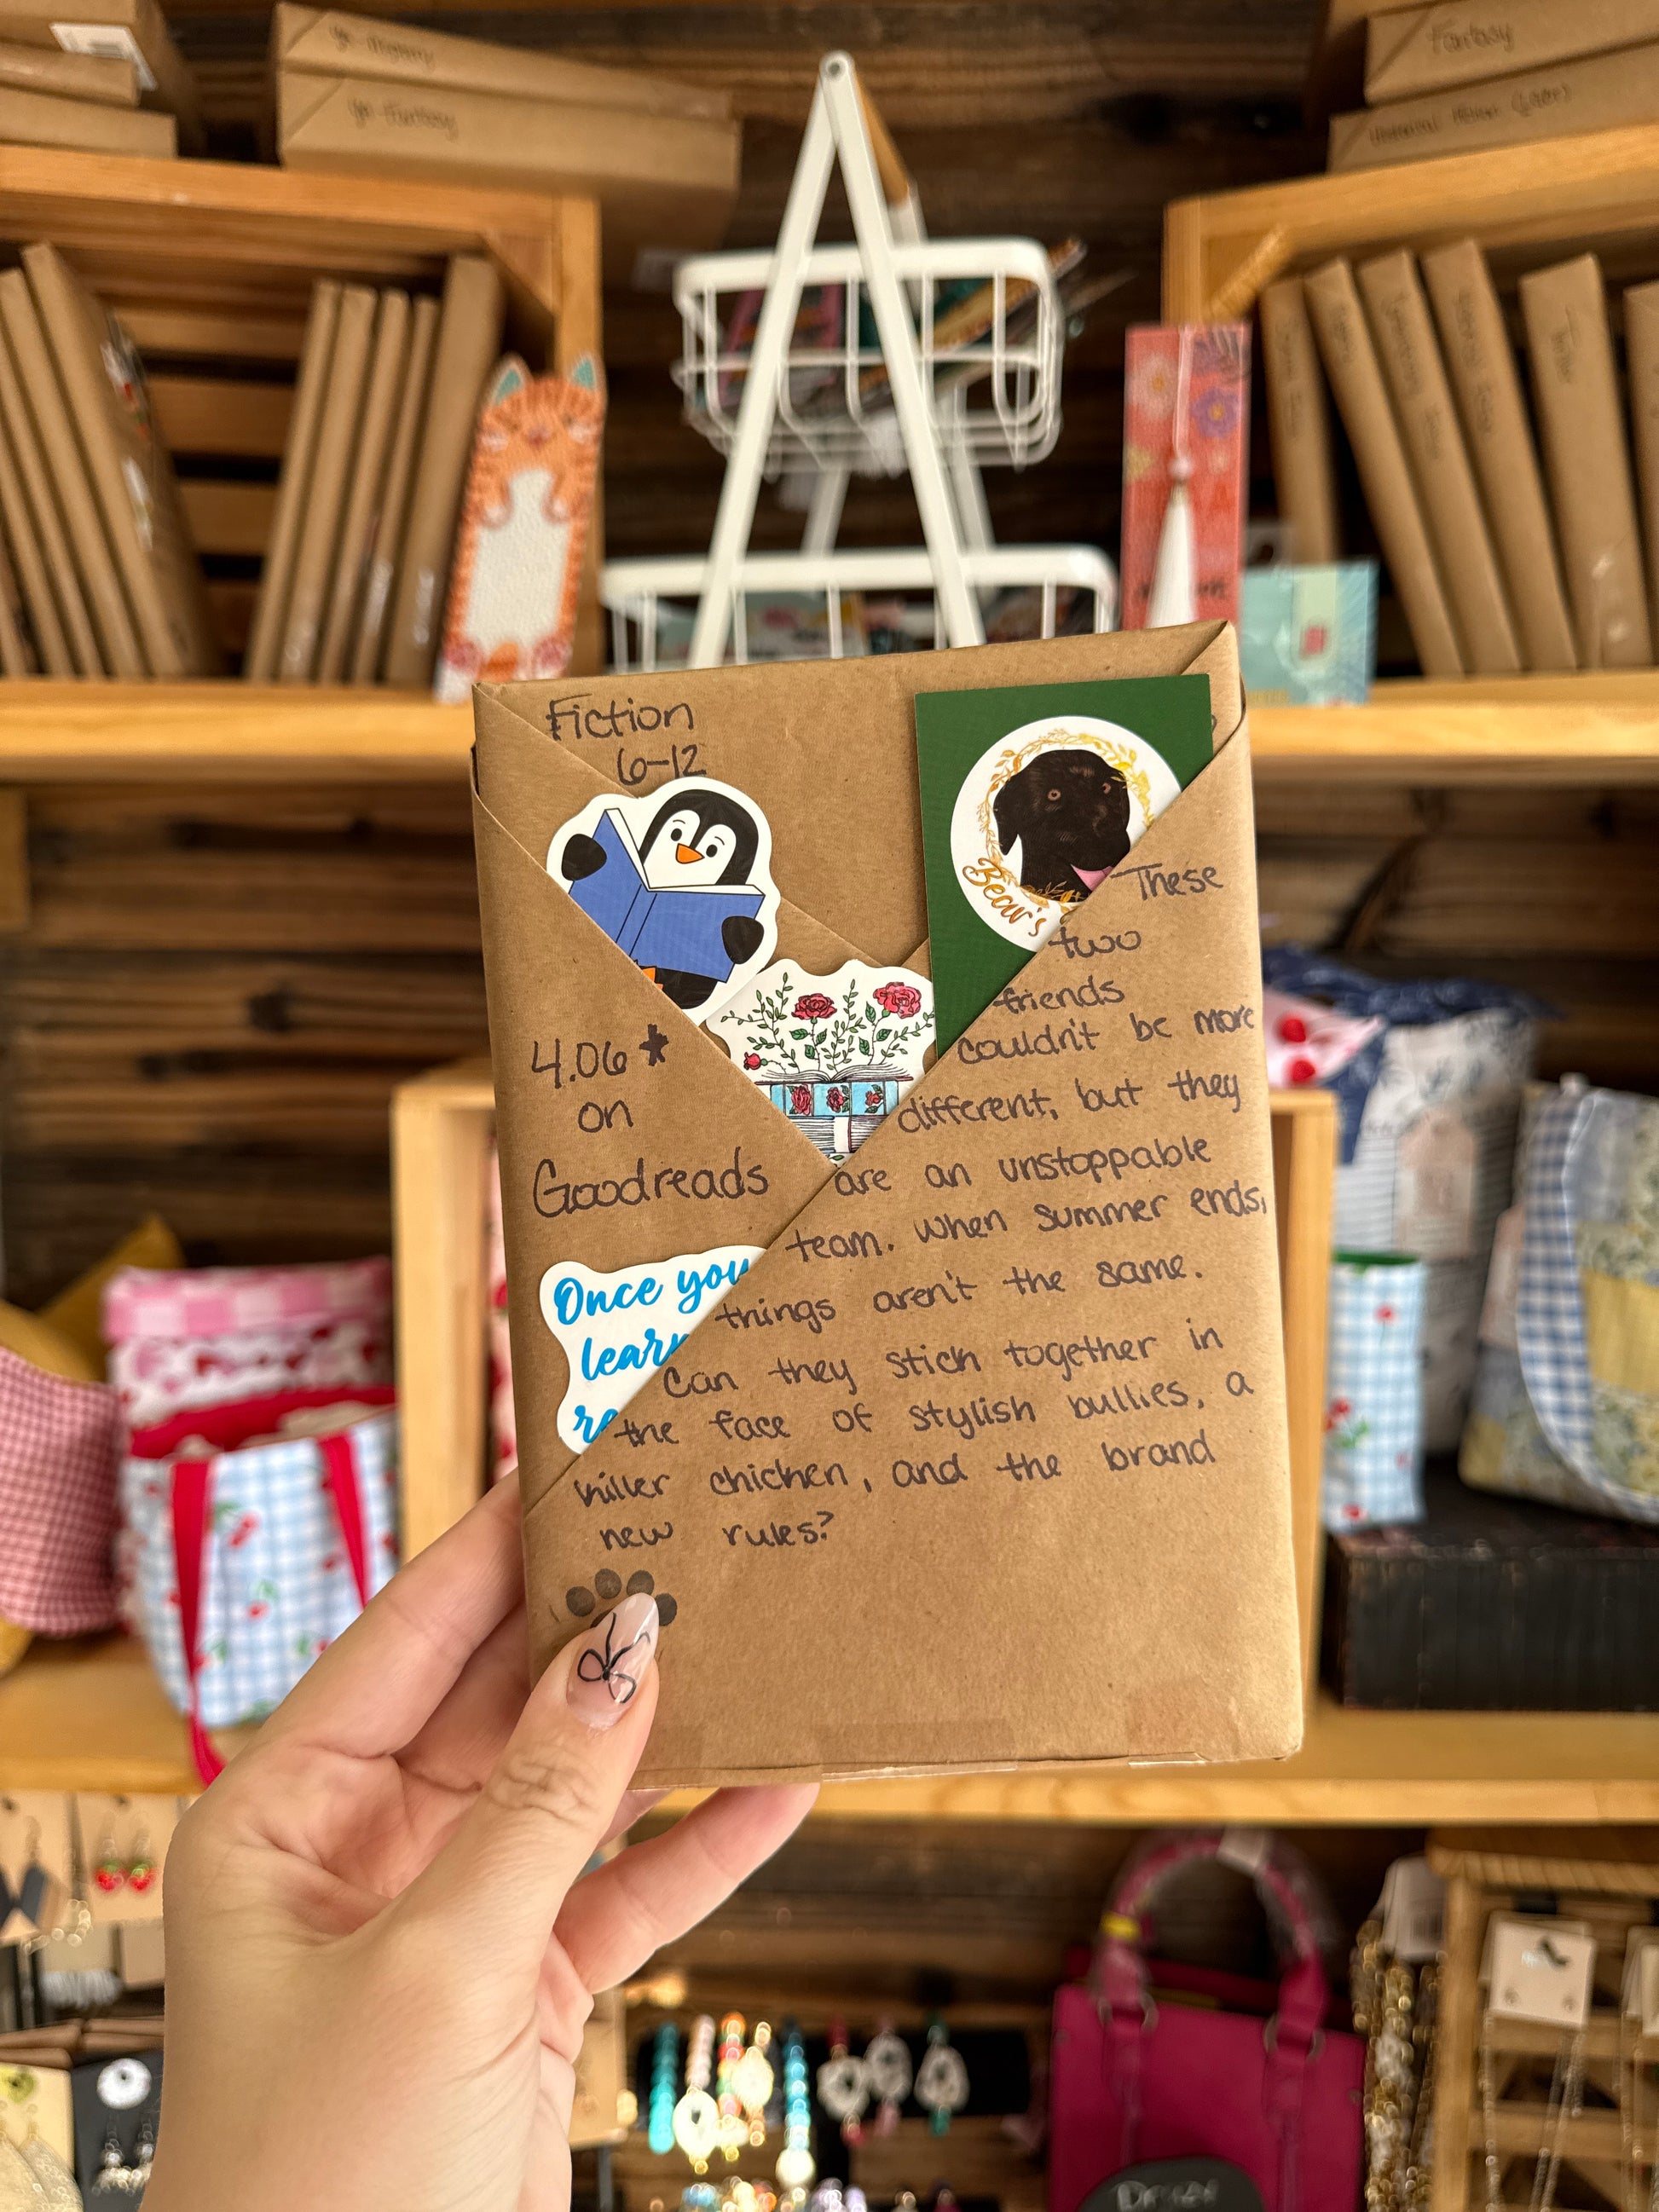 Fantasy
Fiction
6-12
Bear's
4.06 *
on
Goodreads
Once you
lear
re
These
two
friends
couldn't be more
different, but they
are an unstoppable
team. When summer ends,
things aren't the same.
Can they stick together in
the face of stylish bullies, a
killer chicken, and the brand
new rules?